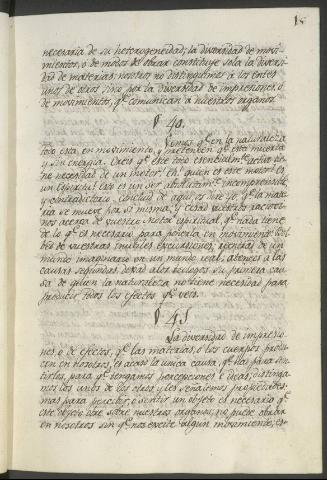 15
necesaria de su heterogeneidad; la diversidad de movi-
mientos, ó de modos del obrar constituye sola la diversi-
dad de materias: nosotros no distinguimos à los entes
unos de otros sino por la diversidad de impresiones, ó
de movimientos, qe. comunican à nuestros organos.
§ 40.
Vemos qe. en la naturaleza
todo está en movimiento, y pretenden qe. está muerta
y sin energia. Creis qe. este todo esencialmte. activo tie-
ne necesidad de un motor! eh! quien es este motor? es
un Espiritu! Esto es un ser absolutamte. incomprensible
y contradictorio. Concluid de aqui, os diré yo, qe. la mate-
ria se mueve por sí misma, y cesad vuestras
acerca de vuestro motor espiritual, qe. nada tiene
de lo qe. es necesario para ponerla en movimiento. Vol-
bed de vuestras inutiles excursiones, de un
mundo imaginario en un mundo real; atenéos à las
causas segundas: dexad alos teologos su primera cau-
sa de quien la naturaleza no tiene necesidad para
producir todos los efectos qe. veis.
§ 41
La diversidad de impresio-
nes, ó de efectos, qe. las materias, ó los cuerpos produ-
cen en nosotros, es acaso la unica causa, qe. los hace sen-
tirlos, para qe. tengamos percepciones é ideas, distinga-
mos los unos de los otros, y les señalemos propiedades:
mas para percibir, ó sentir un objeto es necesario qe.
este objeto obre sobre nuestros organos; no puede obrar
en nosotros sin qe. nos excite algun movimiento, es-